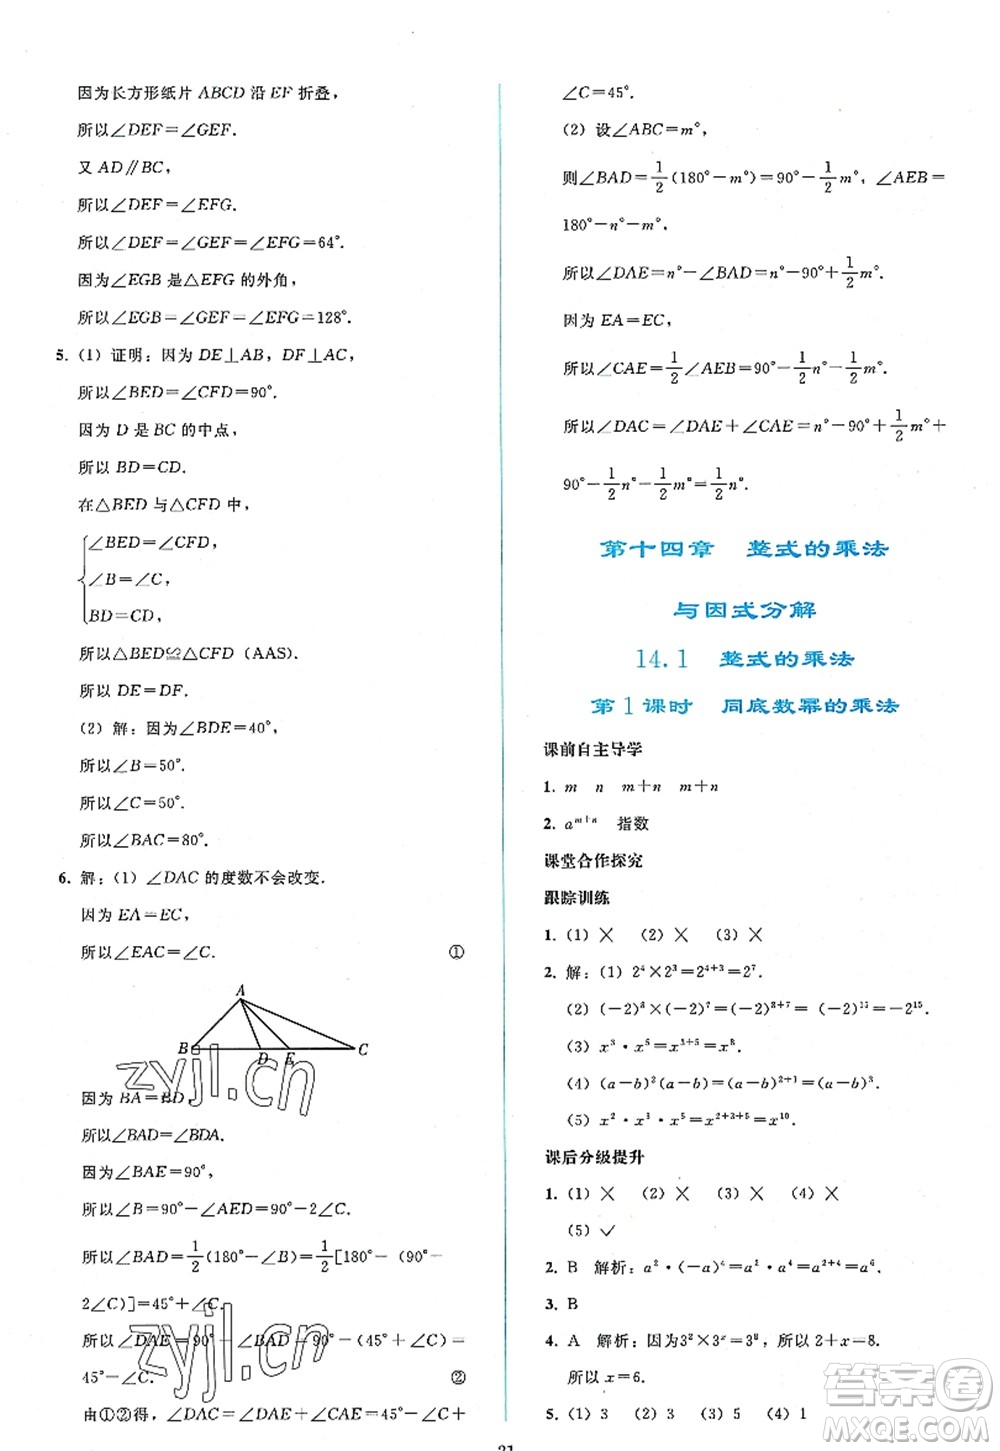 因为长方形纸片 ABCD 沿 EF 折叠，
所以∠DEF＝∠GEF.
又 AD∥BC，
所以∠DEF＝∠EFG.
所以∠DEF＝∠GEF＝∠EFG＝64°.
因为∠EGB 是△EFG 的外角，
所以∠EGB＝∠GEF＋∠EFG＝128°.
5. (1) 证明：因为 DE⊥AB，DF⊥AC，
所以∠BED＝∠CFD＝90°.
因为 D 是 BC 的中点，
所以 BD＝CD.
在△BED 与△CFD 中，
∠BED＝∠CFD，
∠B＝∠C，
BD＝CD，
所以△BED≌△CFD (AAS).
所以 DE＝DF.
(2) 解：因为∠BDE＝40°，
所以∠B＝50°.
所以∠C＝50°.
所以∠BAC＝80°.
6. 解：(1) ∠DAC 的度数不会改变.
因为 EA＝EC，
所以∠EAC＝∠C. ①
A
B D E C
因为 BA＝BD，
所以∠BAD＝∠BDA.
因为∠BAE＝90°，
所以∠B＝90°－∠AED＝90°－2∠C.
所以∠BAD＝1/2(180°－∠B)＝1/2[180°－(90°－
2∠C)]＝45°＋∠C.
所以∠DAE＝90°－∠BAD＝90°－(45°＋∠C)＝
45°－∠C. ②
由①②得，∠DAC＝∠DAE＋∠CAE＝45°－∠C＋
∠C＝45°.
(2) 设∠ABC＝m°，
则∠BAD＝1/2(180°－m°)＝90°－1/2m°，∠AEB＝
180°－n°－m°.
所以∠DAE＝n°－∠BAD＝n°－90°＋1/2m°.
因为 EA＝EC，
所以∠CAE＝1/2∠AEB＝90°－1/2n°－1/2m°.
所以∠DAC＝∠DAE＋∠CAE＝n°－90°＋1/2m°＋
90°－1/2n°－1/2m°＝1/2n°.
第十四章 整式的乘法
与因式分解
14.1 整式的乘法
第1课时 同底数幂的乘法
课前自主导学
1. m n m＋n m＋n
2. a^{m+n} 指数
课堂合作探究
跟踪训练
1. (1) ✕ (2) ✕ (3) ✕
2. 解：(1) 2⁴×2³＝2⁴⁺³＝2⁷.
(2) (－2)⁸×(－2)⁷＝(－2)⁸⁺⁷＝(－2)¹⁵＝－2¹⁵.
(3) x³·x⁵＝x³⁺⁵＝x⁸.
(4) (a－b)²(a－b)＝(a－b)²⁺¹＝(a－b)³.
(5) x²·x³·x⁵＝x²⁺³⁺⁵＝x¹⁰.
课后分级提升
1. (1) ✕ (2) ✕ (3) ✕ (4) ✕
(5) ✓
2. B 解析：a²·(－a)⁴＝a²·a⁴＝a²⁺⁴＝a⁶.
3. B
4. A 解析：因为3²×3ˣ＝3⁸，所以 2＋x＝8.
所以 x＝6.
5. (1) 3 (2) 5 (3) 7 (4) 1
21
zyjl.cn
zyjl.cn
答案圈
MXQE.COM